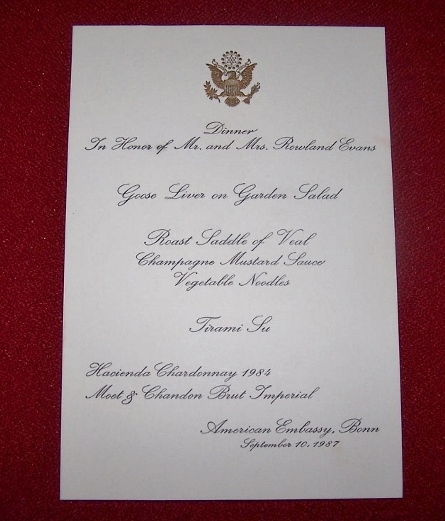 Dinner
In Honor of Mr. and Mrs. Rowland Evans
Goose Liver on Garden Salad
Roast Saddle of Veal
Champagne Mustard Sauce
Vegetable Noodles
Tirami Su
Hacienda Chardonnay 1984
Moet & Chandon Brut Imperial
American Embassy, Bonn
September 10, 1987